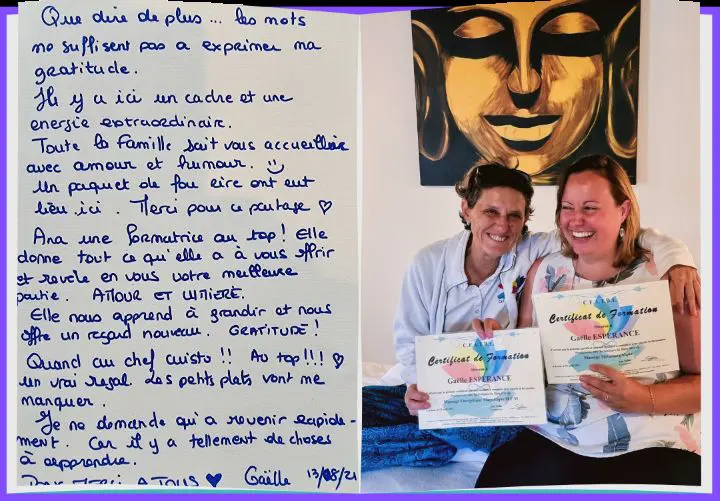 Que dire de plus... les mots
ne suffisent pas a exprimer ma
gratitude.
Il y a ici un cadre et une
energie extraordinaire.
Toute la Famille sait vous accueillir
avec amour et humour. ☺
Un paquet de fou rire ont eut
lieu ici. Merci pour ce partage ♡
Ana une formatrice au top! Elle
donne tout ce qu'elle a à vous offrir
et revèle en vous votre meilleure
partie. AMOUR ET LUMIERE.
Elle nous apprend à grandir et nous
offre un regard nouveau. GRATITUDE!
Quand au chef cuisto!! Au top!!! ♡
un vrai regal. Les petits plats vont me
manquer.
Je ne demande qu'a revenir rapide-
ment. Car il y a tellement de choses
à apprendre.
MERCI A TOUS ♥ Gaëlle 13/08/21
C.F.A.T.B.E.
Certificat de Formation
Gaëlle ESPERANCE
C.F.A.T.B.E.
Certificat de Formation
Gaëlle ESPERANCE